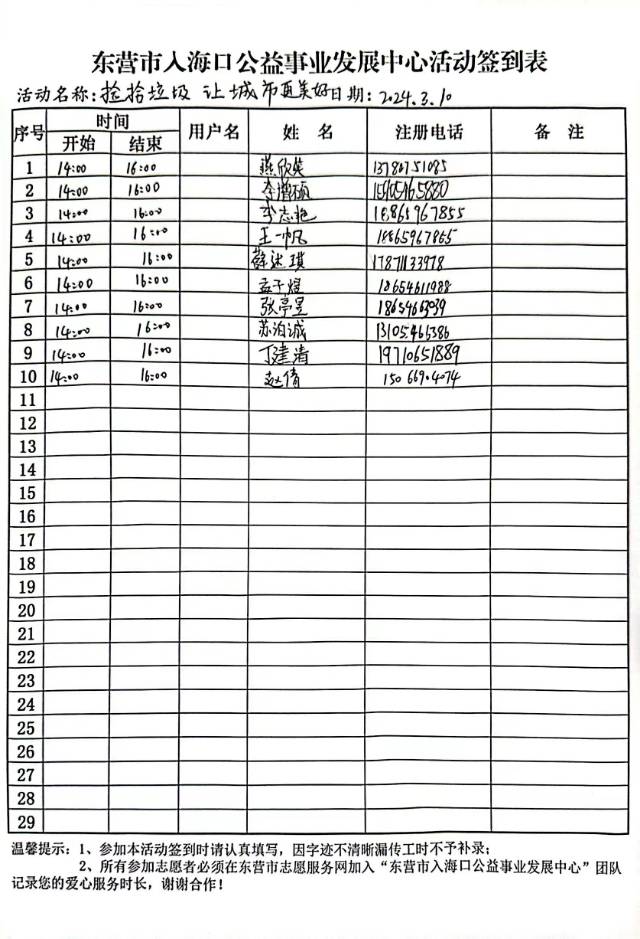 东营市入海口公益事业发展中心活动签到表
活动名称：捡拾垃圾 让城市更美好 日期：2024.3.10
序号 时间 用户名 姓名 注册电话 备注
开始 结束
1 14:00 16:00 燕欣英 13780751085
2 14:00 16:00
3 14:00 16:00 李志艳 18865967855
4 14:00 16:00 王一帆 18865967865
5 14:00 16:00 17871133978
6 14:00 16:00 孟千煜 18654611988
7 14:00 16:00 张亭昱
8 14:00 16:00 苏泊诚 13105465386
9 14:00 16:00 丁建清 19710651889
10 14:00 16:00 赵倩 15066904074
11
12
13
14
15
16
17
18
19
20
21
22
23
24
25
26
27
28
29
温馨提示：1、参加本活动签到时请认真填写，因字迹不清晰漏传工时不予补录；
2、所有参加志愿者必须在东营市志愿服务网加入“东营市入海口公益事业发展中心”团队
记录您的爱心服务时长，谢谢合作！